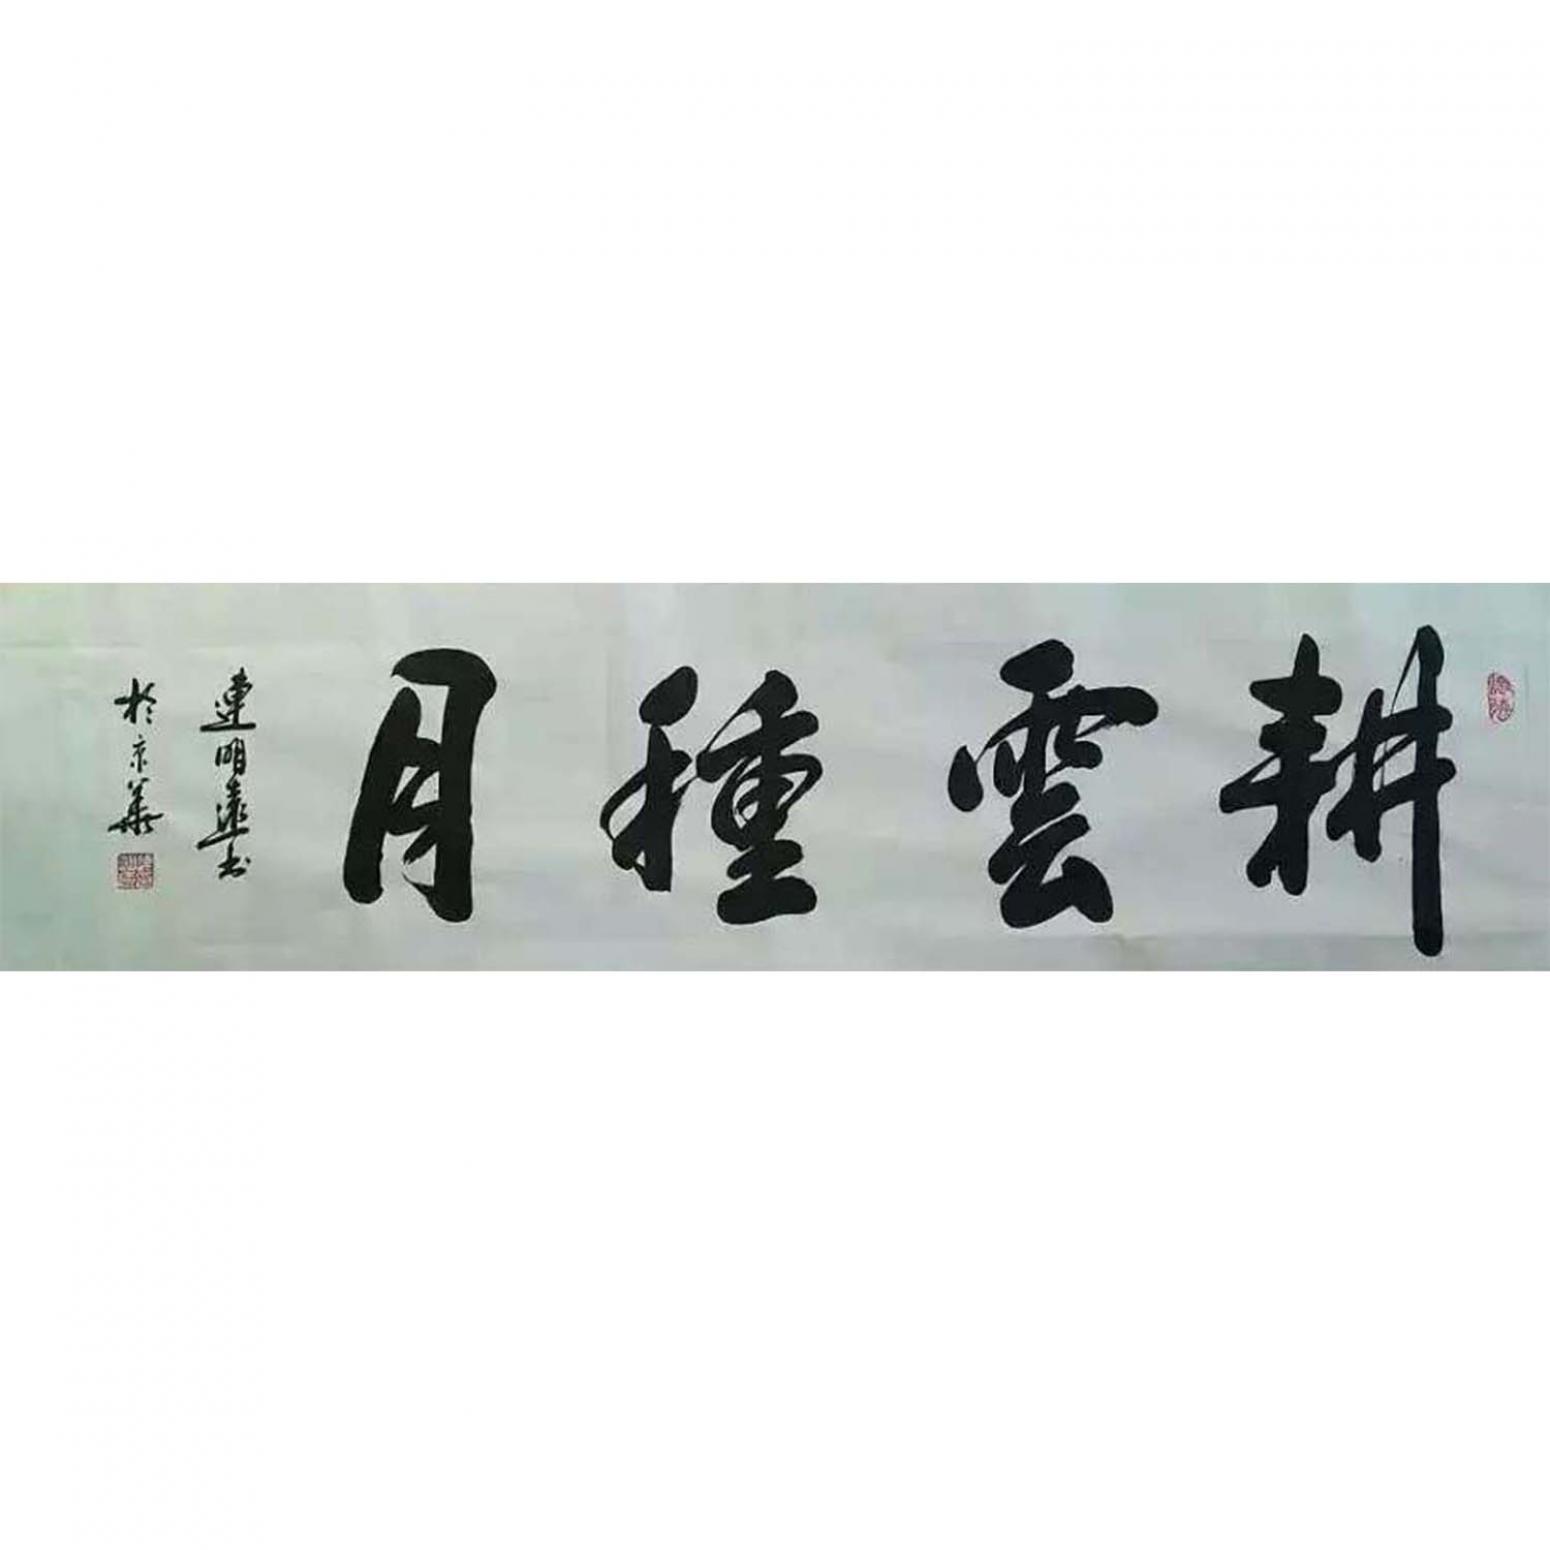 耕雲種月
連明遠書
於京華